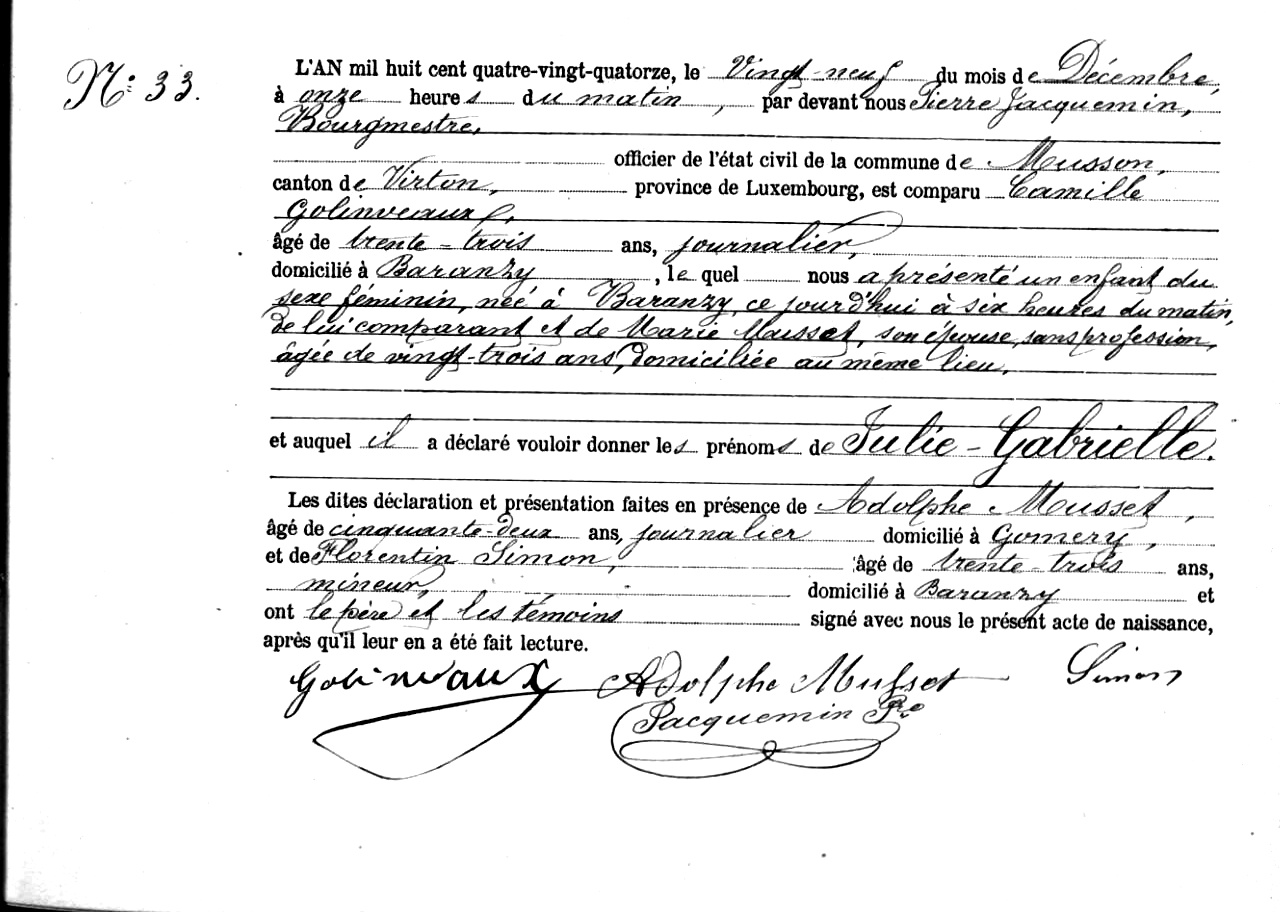 N° 33.
L'AN mil huit cent quatre-vingt-quatorze, le Vingt-neuf du mois de Décembre,
à onze heures du matin, par devant nous Pierre Jacquemin,
Bourgmestre,
officier de l'état civil de la commune de Musson,
canton de Virton, province de Luxembourg, est comparu Camille
Golinveaux,
âgé de trente-trois ans, journalier,
domicilié à Baranzy, le quel nous a présenté un enfant du
sexe féminin, née à Baranzy, ce jourd'hui à six heures du matin,
de lui comparant et de Marie Musset, son épouse, sans profession,
âgée de vingt-trois ans, domiciliée au même lieu,
et auquel il a déclaré vouloir donner les prénoms de Julie-Gabrielle.
Les dites déclaration et présentation faites en présence de Adolphe Musset,
âgé de cinquante-deux ans, journalier domicilié à Gomery,
et de Florentin Simon, âgé de trente-trois ans,
mineur, domicilié à Baranzy et
ont le père et les témoins signé avec nous le présent acte de naissance,
après qu'il leur en a été fait lecture.
Golinvaux Adolphe Musset Simon
Jacquemin Pre